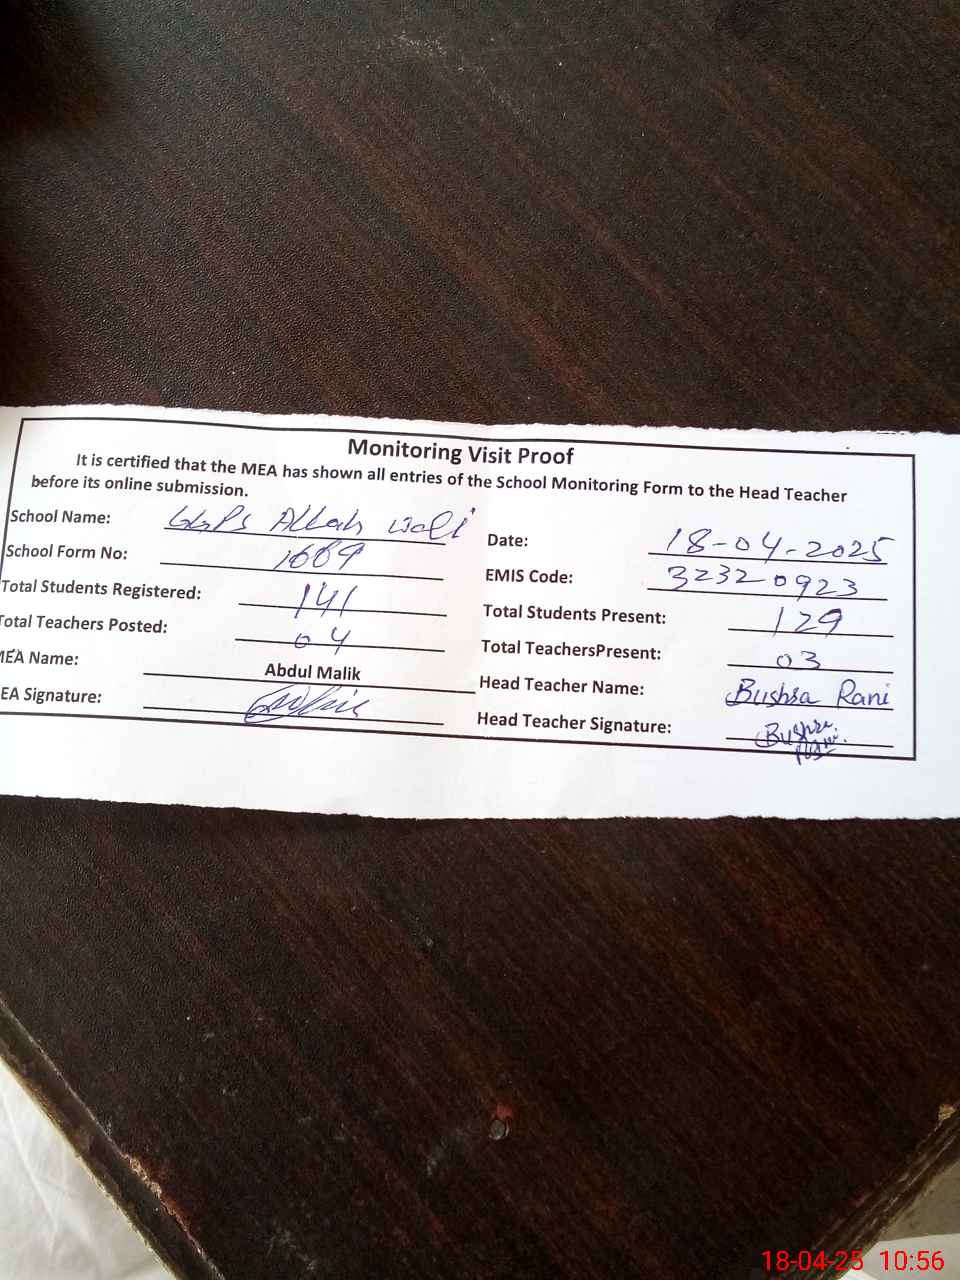 Monitoring Visit Proof
It is certified that the MEA has shown all entries of the School Monitoring Form to the Head Teacher
before its online submission.
School Name: GGPS Allah Wali
Date: 18-04-2025
School Form No: 1689
EMIS Code: 32320923
Total Students Registered: 141
Total Students Present: 129
Total Teachers Posted: 04
Total TeachersPresent: 03
MEA Name: Abdul Malik
Head Teacher Name: Bushra Rani
EA Signature:
Head Teacher Signature: Bushra Rani
18-04-25 10:56